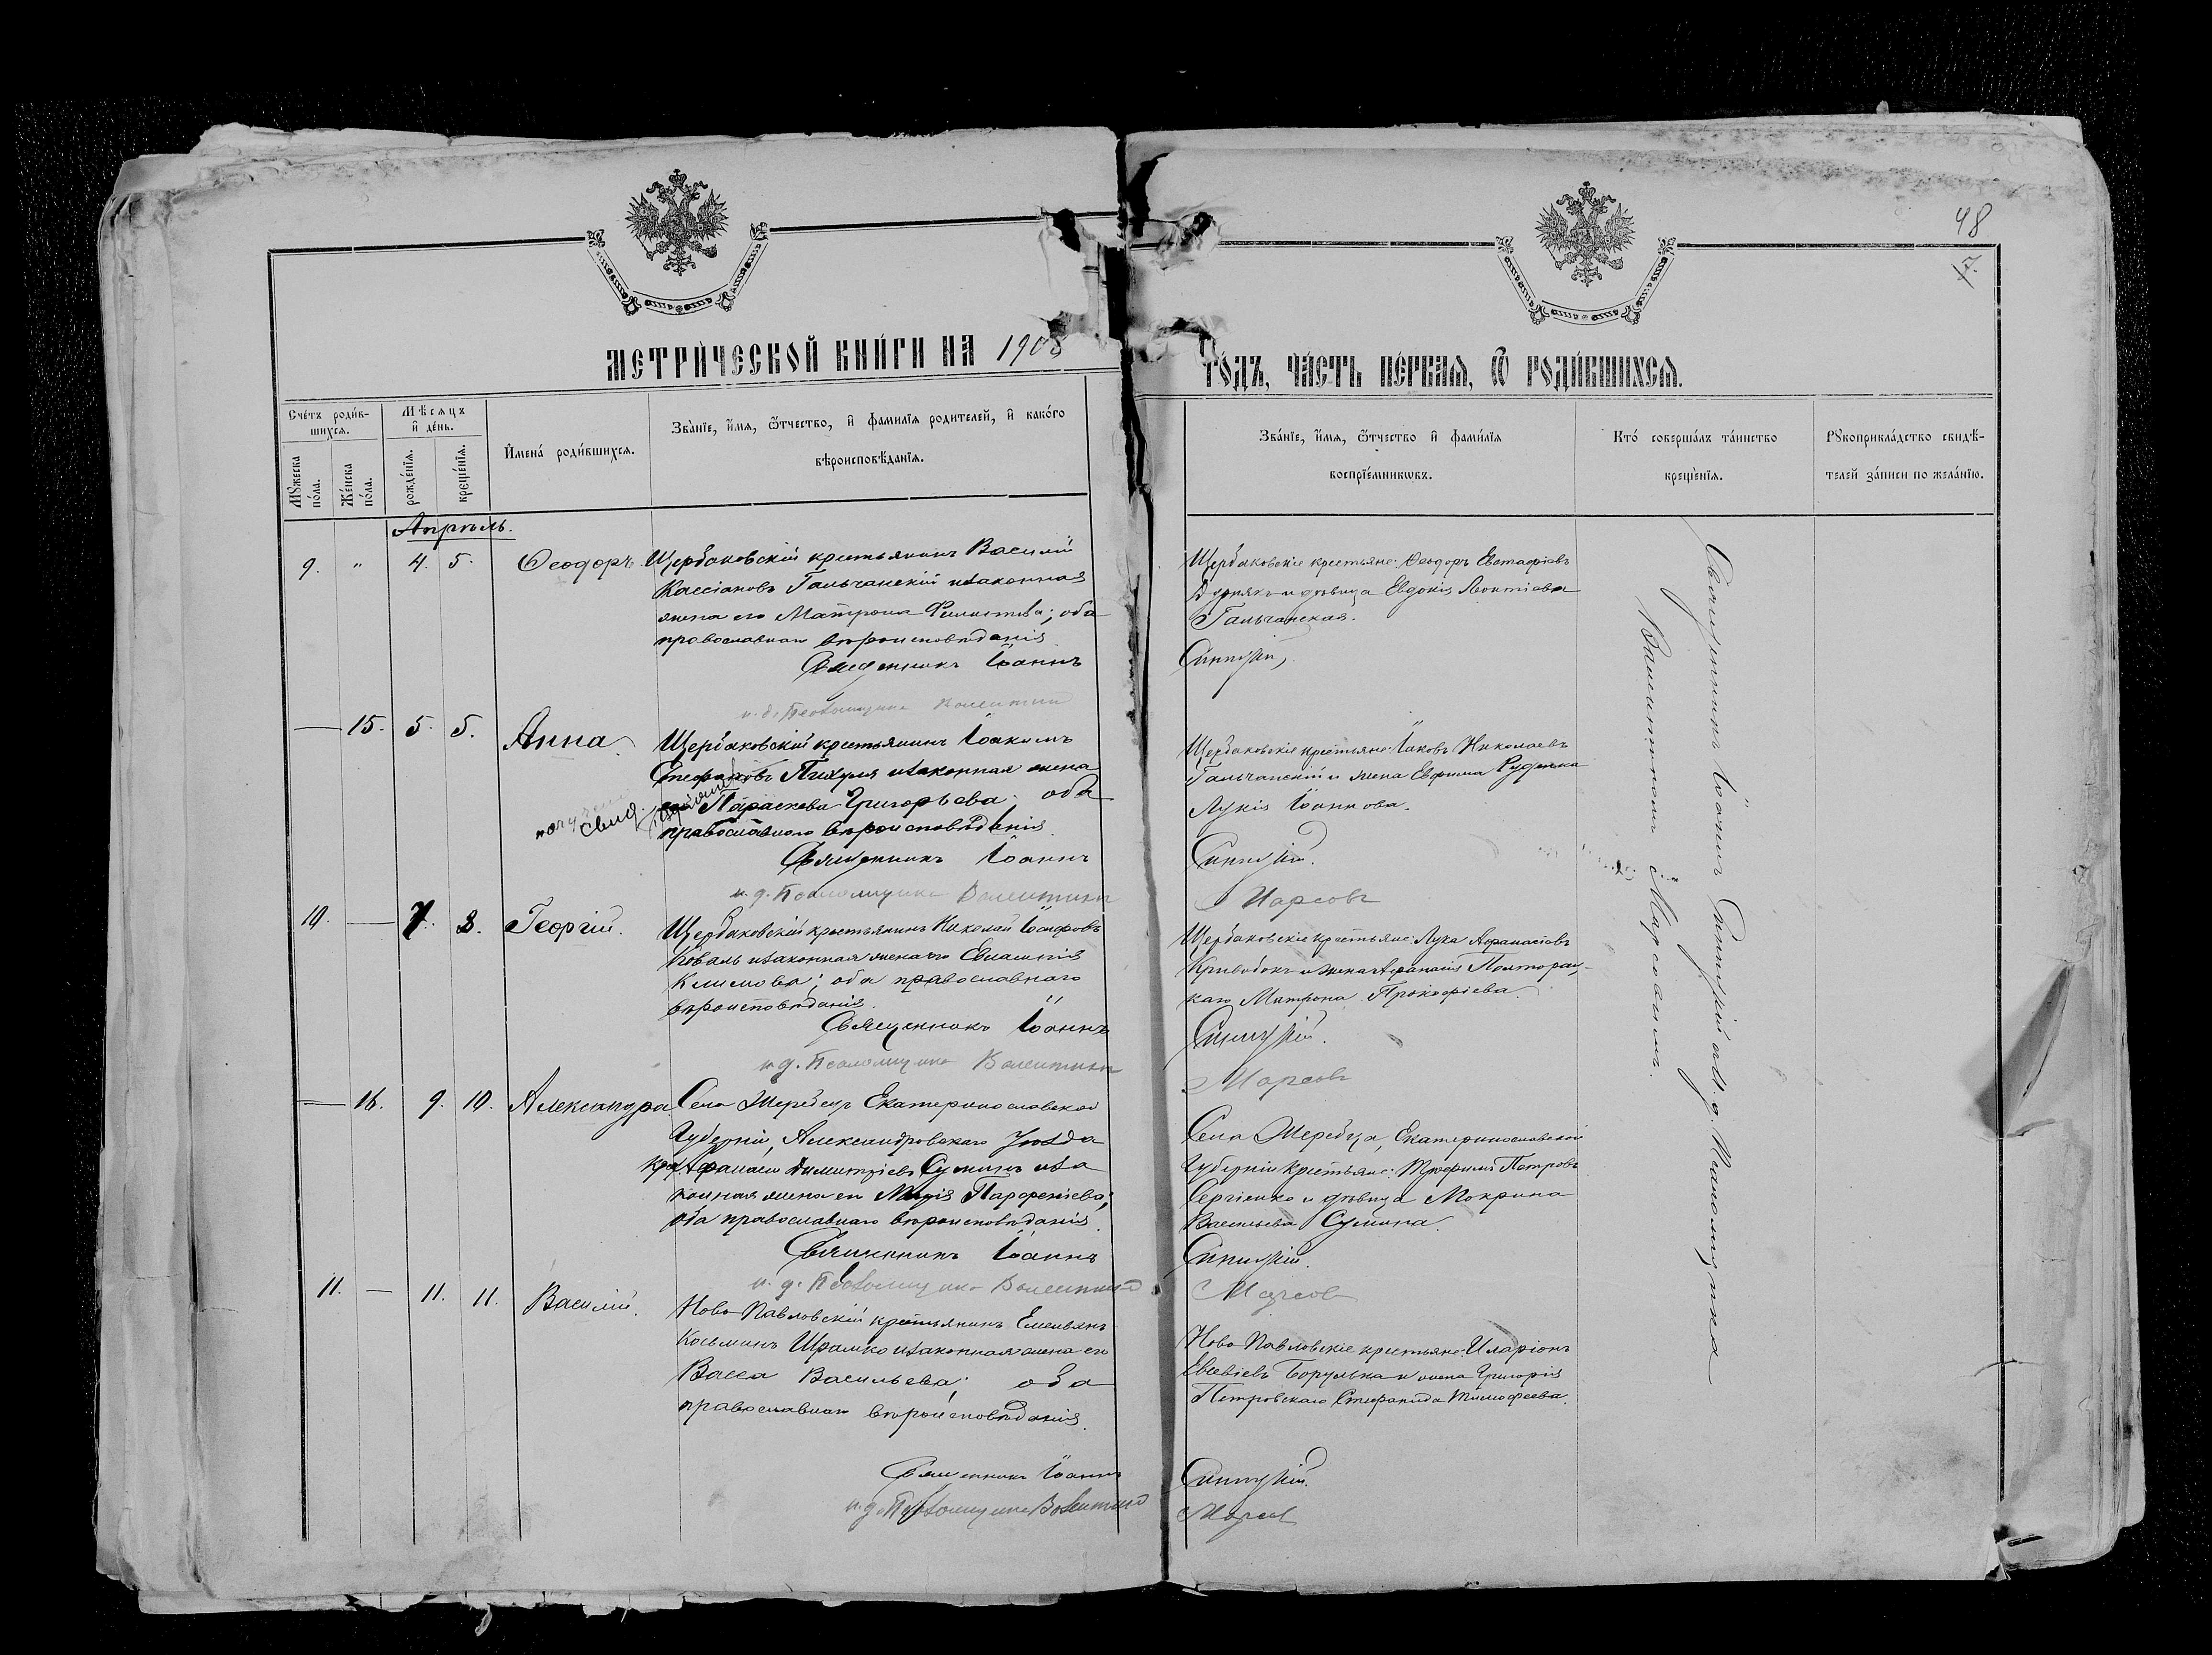 48
7.
МЕТРИЧЕСКОЙ КНИГИ НА 1908
ГОДЪ, ЧАСТЬ ПЕРВАЯ, Ѿ РОДИВШИХСЯ.
Счетъ родив-
шихся.
Мѣсяцъ
и день.
Имена родившихся.
Званіе, имя, ѿтчество, и фамилія родителей, и какого
вѣроисповѣданія.
Мужеска
пола.
Женска
пола.
рожденія.
крещенія.
Званіе, имя, ѿтчество и фамилія
воспріемниковъ.
Кто совершалъ таинство
крещенія.
Рукоприкладство свидѣ-
телей записи по желанію.
Апрѣль.
9. " 4. 5. Ѳеодоръ.
Щербаковскій крестьянинъ Василій
Кассіановъ Гальчанскій и законная
жена его Матрона; оба
православнаго вѣроисповѣданія
Священникъ Іоаннъ
и. д. Псаломщика Валентин
Щербаковскіе крестьяне: Ѳеодоръ Евстафіевъ
и дѣвица Евдокія Леонтіева
Гальчанская.
Синицкій
— 15. 5. 5. Анна
Щербаковскій крестьянинъ Іоакимъ
Стефановъ и законная жена
его Параскева Григорьева; оба
православнаго вѣроисповѣданія.
свид.
Священникъ Іоаннъ
и. д. Псаломщика Валентинъ
Щербаковскіе крестьяне: Іаковъ Николаевъ
Гальчанскій и жена Евфима Руденка
Лукія Іоаннова.
Синицкій.
Марсовъ
10. — 7. 8. Георгій.
Щербаковскій крестьянинъ Николай Іосифовъ
Коваль и законная жена его Евлампія
Климова; оба православнаго
вѣроисповѣданія.
Священникъ Іоаннъ
и. д. Псаломщика Валентинъ
Щербаковскіе крестьяне: Лука Аѳанасіевъ
Кривобокъ и жена Аѳанасія Полторац-
каго Матрона Прокофіева.
Синицкій.
Марсовъ
— 16. 9. 10. Александра.
Села Жеребецъ Екатеринославской
Губерніи, Александровскаго Уѣзда
кр. Аѳанасій Димитріевъ Суминъ и за
конная жена его Марія Парфеніева;
оба православнаго вѣроисповѣданія.
Священникъ Іоаннъ
и. д. Псаломщика Валентинъ
Села Жеребца, Екатеринославской
Губерніи крестьяне: Трофимъ Петровъ
Сергіенко и дѣвица Мокрина
Васильева Сумина.
Синицкій.
Марсовъ
11. — 11. 11. Василій.
Ново-Павловскій крестьянинъ Емельянъ
Косьминъ Шрамко и законная жена его
Васса Васильева; оба
православнаго вѣроисповѣданія.
Священникъ Іоаннъ
и. д. Псаломщика Валентинъ
Ново-Павловскіе крестьяне: Иларіонъ
Евсевіевъ Борулька и жена Григорія
Петровскаго Стефанида Тимофеева.
Синицкій.
Марсовъ
Священникъ Іоаннъ Синицкій съ и. д. Псаломщика
Валентиномъ Марсовымъ.